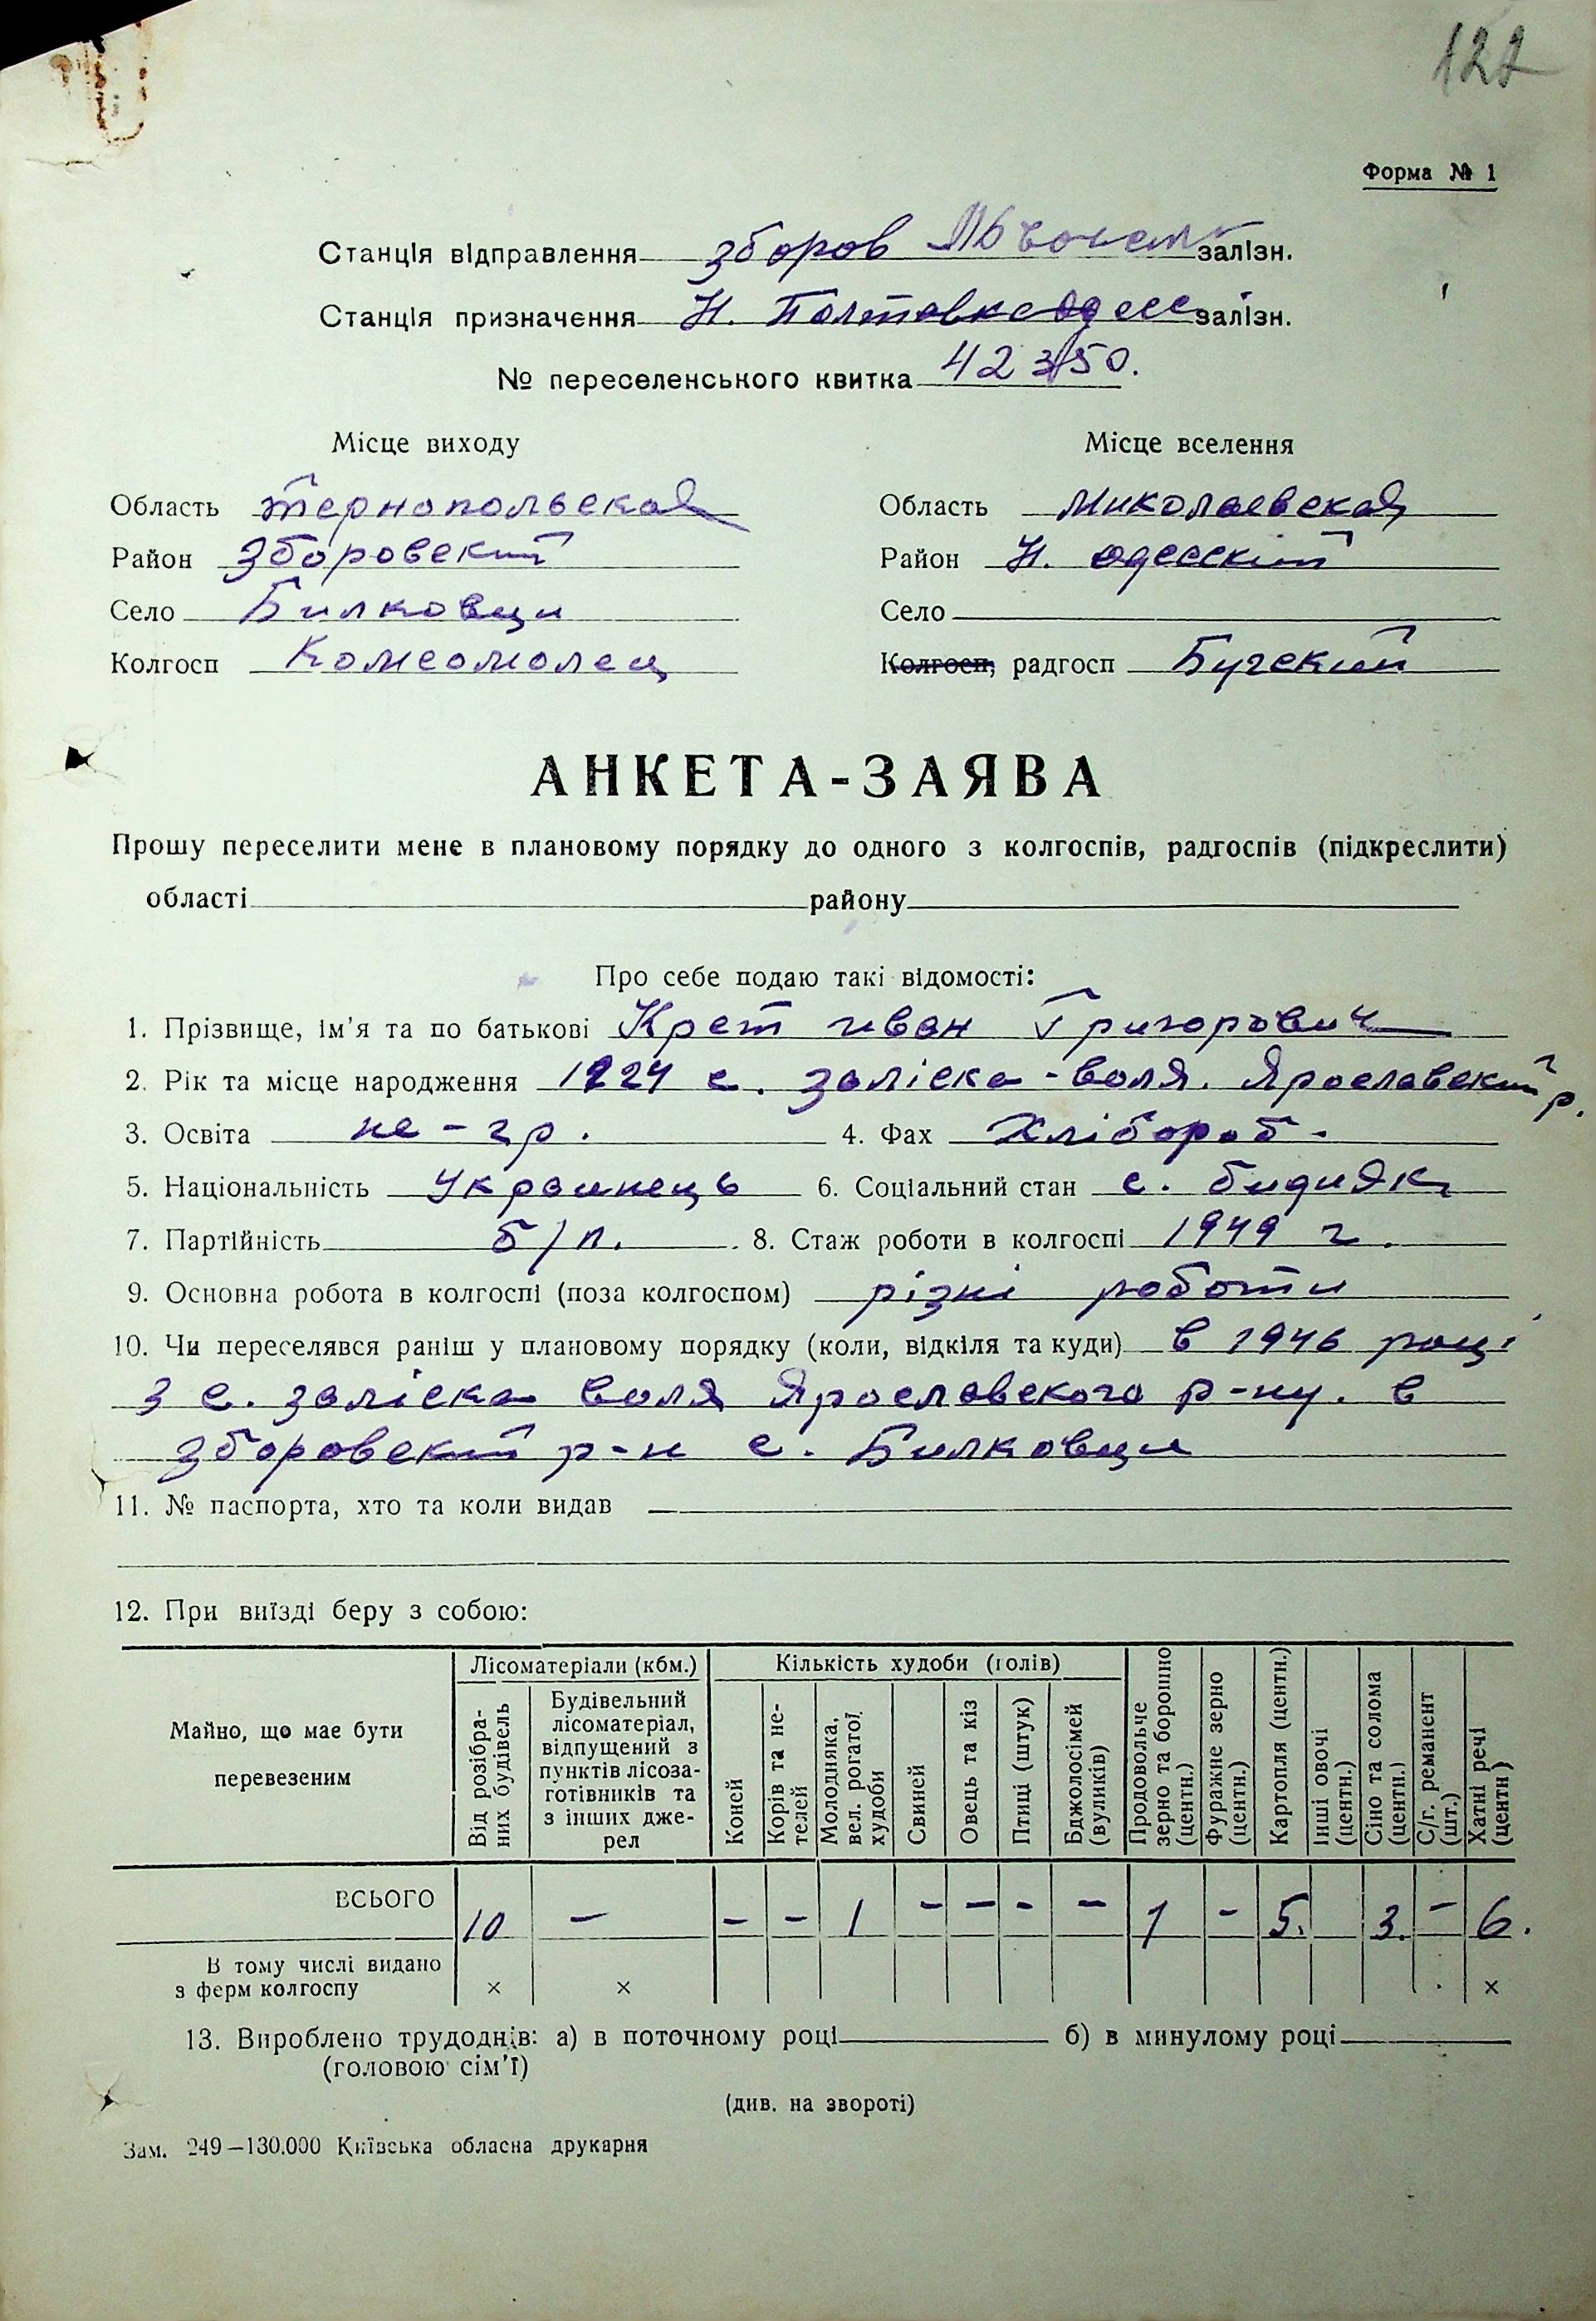 122
Форма № 1
Станція відправлення зборов Львовск залізн.
Станція призначення Н. Полтовка Одесс залізн.
№ переселенського квитка 423150.
Місце виходу Місце вселення
Область тернопольская Область Николаевская
Район Зборовский Район Н. Одесский
Село Билковци Село
Колгосп Комсомолец Колгосп, радгосп Бугский
АНКЕТА-ЗАЯВА
Прошу переселити мене в плановому порядку до одного з колгоспів, радгоспів (підкреслити)
області району
Про себе подаю такі відомості:
1. Прізвище, ім'я та по батькові Крет иван Григорович
2. Рік та місце народження 1924 с. заліска-воля. Ярославский р.
3. Освіта не-гр. 4. Фах Хлібороб.
5. Національність Украинець 6. Соціальний стан с. бидняк
7. Партійність б/п. 8. Стаж роботи в колгоспі 1949 г.
9. Основна робота в колгоспі (поза колгоспом) різні роботи
10. Чи переселявся раніш у плановому порядку (коли, відкіля та куди) в 1946 році
з с. заліска воля Ярославского р-ну. в
зборовский р-н с. Билковци
11. № паспорта, хто та коли видав
12. При виїзді беру з собою:
Майно, що має бути перевезеним
Лісоматеріали (кбм.) Кількість худоби (голів)
Від розібраних будівель
Будівельний лісоматеріал, відпущений з пунктів лісозаготівників та з інших джерел
Коней
Корів та нетелей
Молодняка, вел. рогатої худоби
Свиней
Овець та кіз
Птиці (штук)
Бджолосімей (вуликів)
Продовольче зерно та борошно (центн.)
Фуражне зерно (центн.)
Картопля (центн.)
Інші овочі (центн.)
Сіно та солома (центн.)
С/г. реманент (шт.)
Хатні речі (центн)
ВСЬОГО 10 — – – 1 – – – – 1 – 5. 3. – 6.
В тому числі видано
з ферм колгоспу × × ×
13. Вироблено трудоднів: а) в поточному році б) в минулому році
(головою сім'ї)
(див. на звороті)
Зам. 249—130.000 Київська обласна друкарня